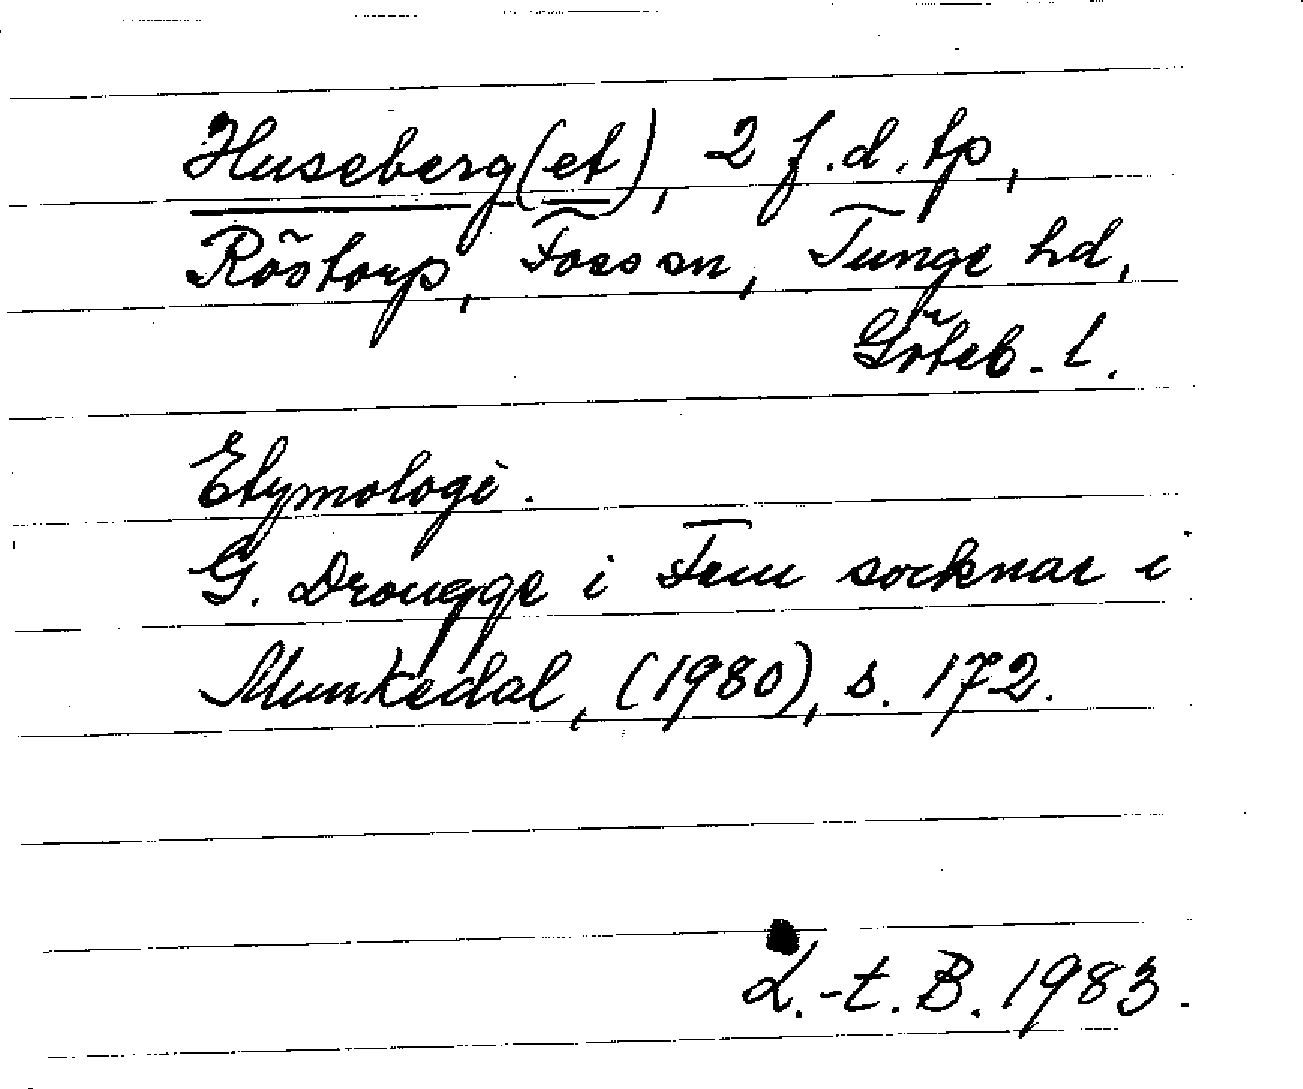 Huseberg(et), 2 f.d. tp,
Röötorp, Foss sn, Tunge hd,
Göteb. l.
Etymologi.
G. Drougge i Fem socknar i
Munkedal, (1980), s. 172.
L.-t. B. 1983.